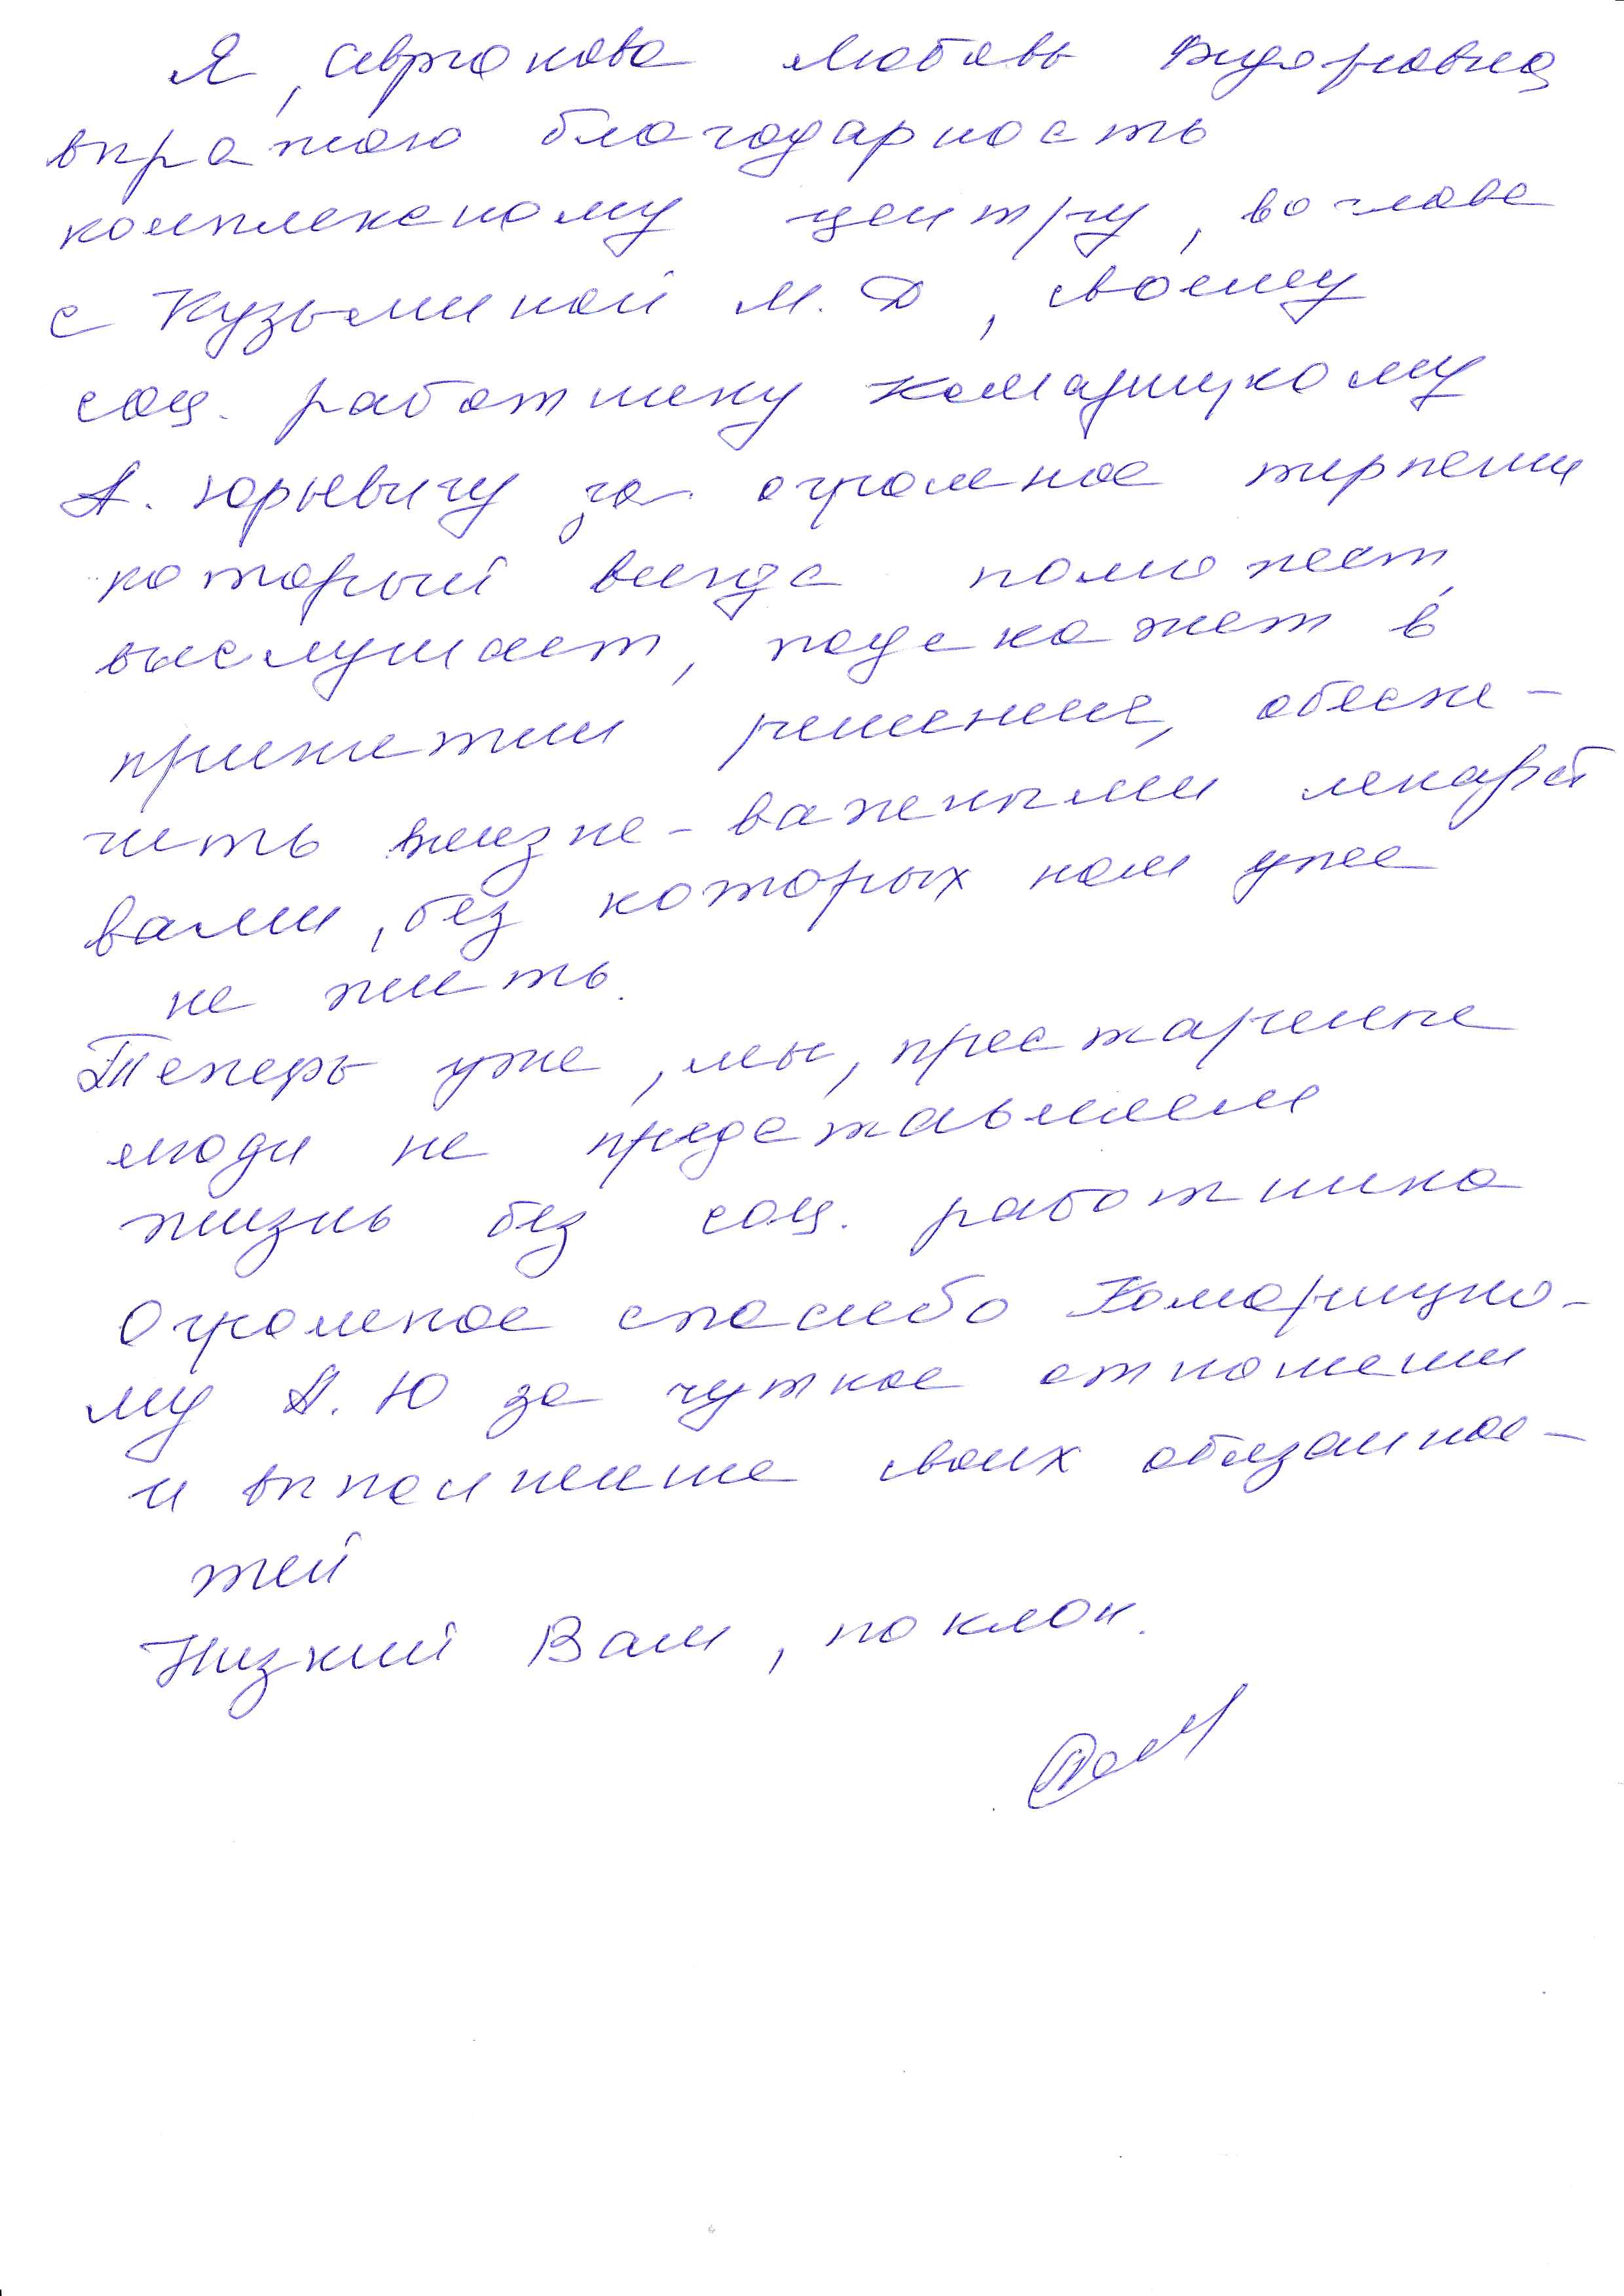 Я, Аврюкова Любовь Фёдоровна
выражаю благодарность
комплексному центру, во главе
с Кузьминой М. Д, своему
соц. работнику Комарицкому
А. Юрьевичу за огромное терпении
который всегда поможет,
выслушает, подскажет в
принятии решение, обеспе-
чить жизне-важеными лекарст
вами, без которых нам уже
не жить.
Теперь уже, мы, престарелые
люди не представляем
жизнь без соц. работника
Огромное спасибо Комарицко-
му А. Ю за чуткое отношении
и выполнение своих обязаннос-
тей
Низкий Вам, поклон.